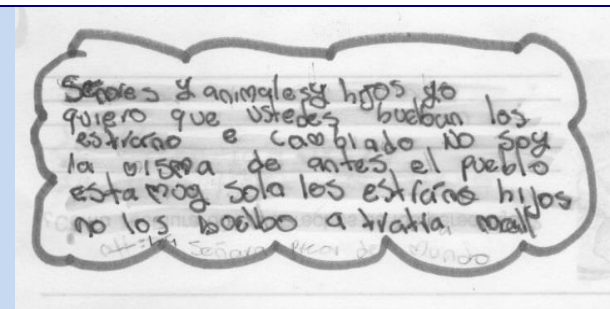 Señores y animales y hijos yo
quiero que ustedes buelban los
estraño e cambiado no soy
la misma de antes, el pueblo
esta muy sola los estraño hijos
no los boelbo a tratra mal
att: la Señora Peor del Mundo